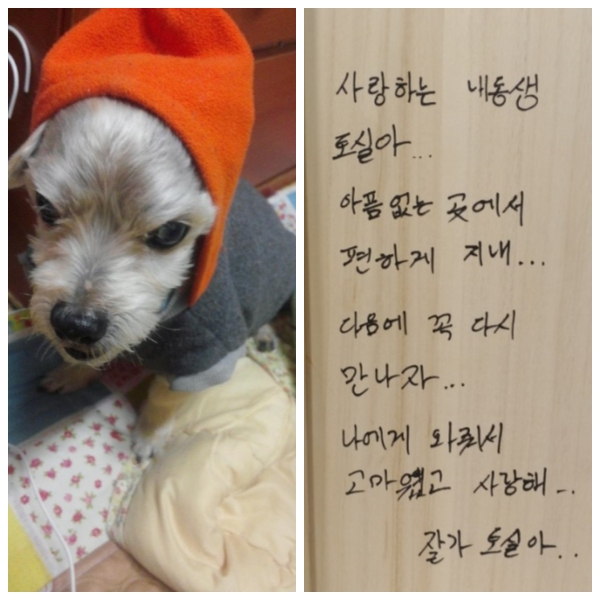 사랑하는 내동생
토실아...
아픔 없는 곳에서
편하게 지내...
다음에 꼭 다시
만나자...
나에게 와줘서
고마웠고 사랑해...
잘가 토실아..